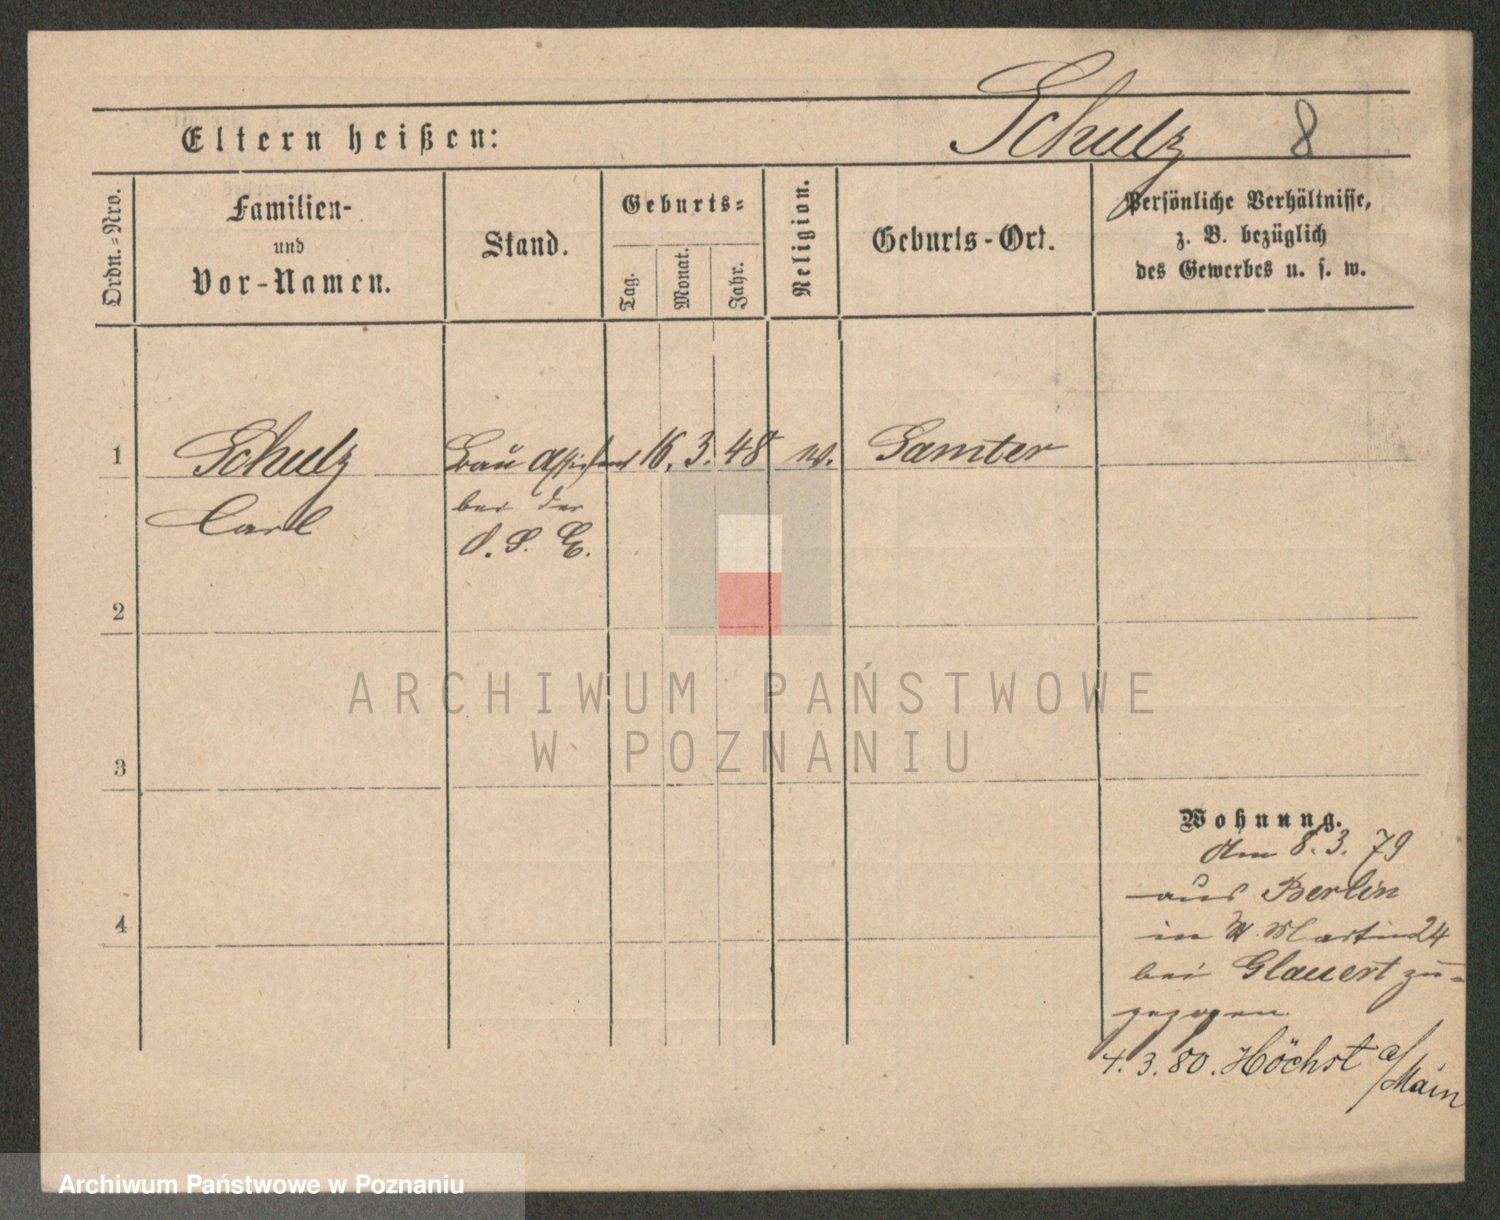 Schulz 8
Eltern heißen:
Ordn.=Nro.
Familien-
und
Vor-Namen.
Stand.
Geburts=
Tag.
Monat.
Jahr.
Religion.
Geburts-Ort.
Persönliche Verhältnisse,
z. B. bezüglich
des Gewerbes u. s. w.
1 Schulz Bau Assistent 16. 3. 48 Samter
Carl bei der
O. S. E.
2
ARCHIWUM PAŃSTWOWE
W POZNANIU
3
Wohnung.
Am 8. 3. 79
aus Berlin
4
in St. Martin 24
bei Glauert zu-
gezogen.
4. 3. 80. Höchst a/Main
Archiwum Państwowe w Poznaniu